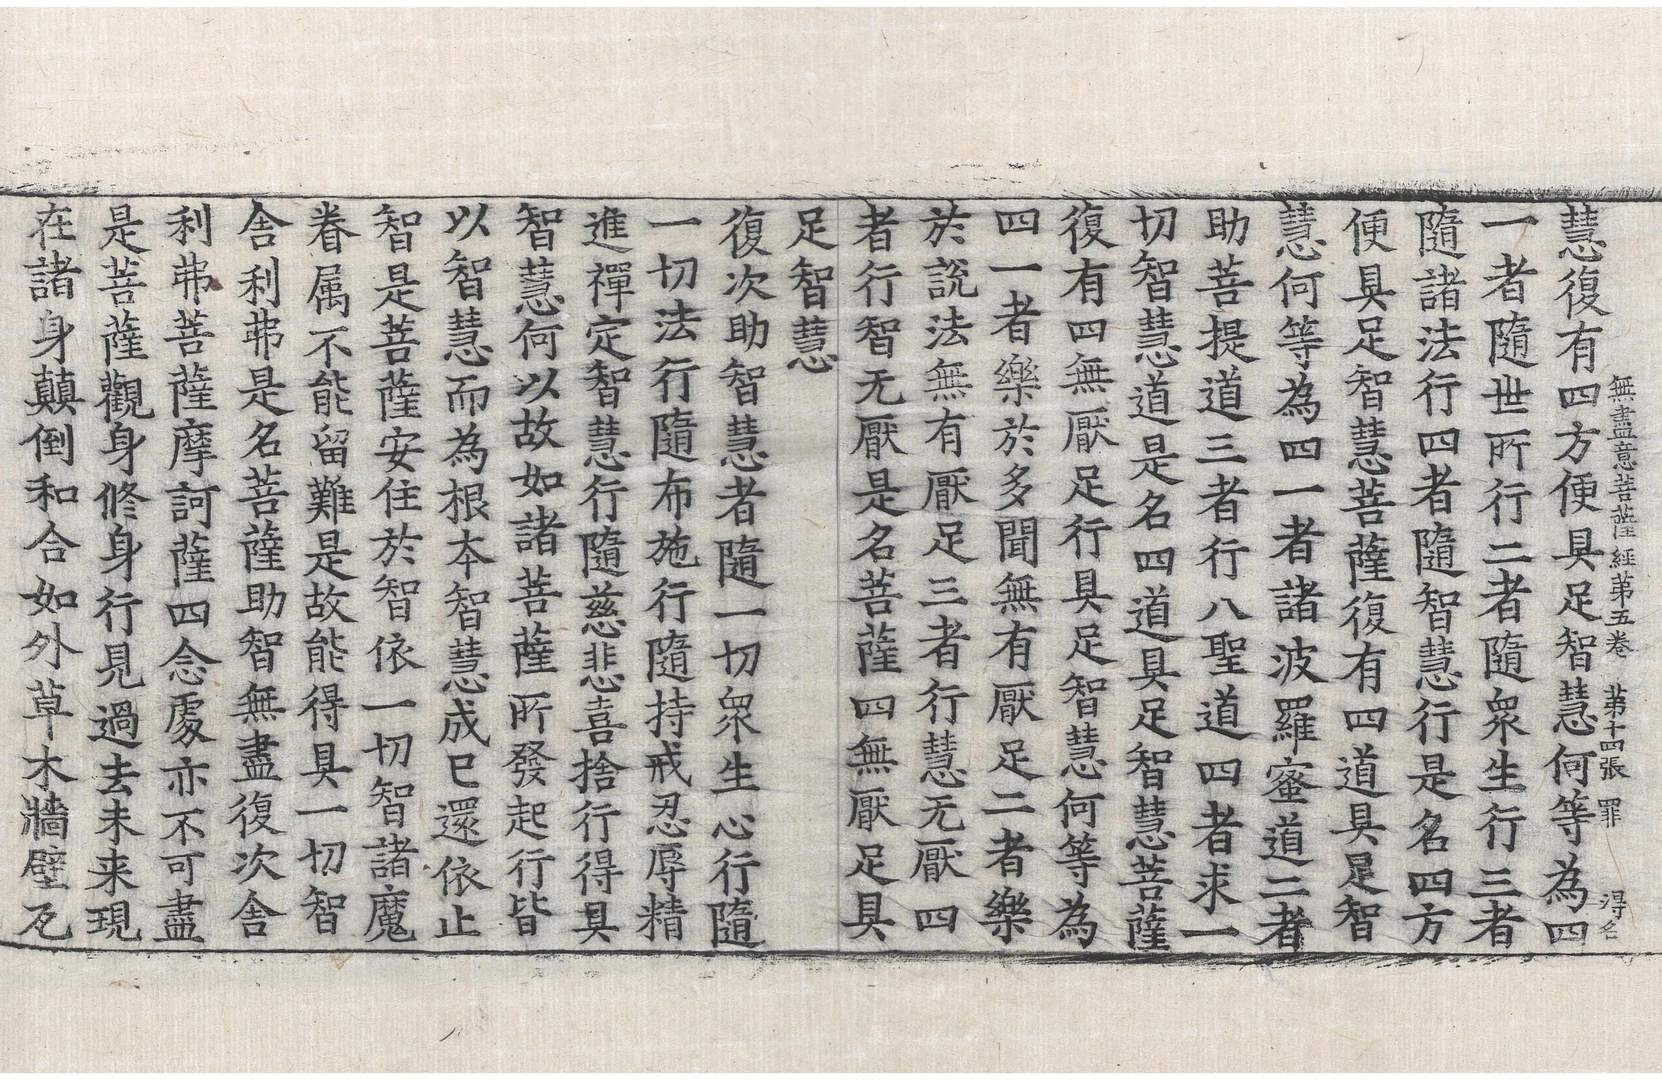 無盡意菩薩經第五卷 第十四張 罪 得名
慧復有四方便具足智慧何等為四
一者隨世所行二者隨衆生行三者
隨諸法行四者隨智慧行是名四方
便具足智慧菩薩復有四道具足智
慧何等為四一者諸波羅蜜道二者
助菩提道三者行八聖道四者求一
切智慧道是名四道具足智慧菩薩
復有四無厭足行具足智慧何等為
四一者樂於多聞無有厭足二者樂
於說法無有厭足三者行慧无厭四
者行智无厭是名菩薩四無厭足具
足智慧
復次助智慧者隨一切衆生心行隨
一切法行隨布施行隨持戒忍辱精
進禪定智慧行隨慈悲喜捨行得具
智慧何以故如諸菩薩所發起行皆
以智慧而為根本智慧成已還依止
智是菩薩安住於智依一切智諸魔
眷属不能留難是故能得具一切智
舍利弗是名菩薩助智無盡復次舍
利弗菩薩摩訶薩四念處亦不可盡
是菩薩觀身修身行見過去未来現
在諸身顛倒和合如外草木牆壁瓦